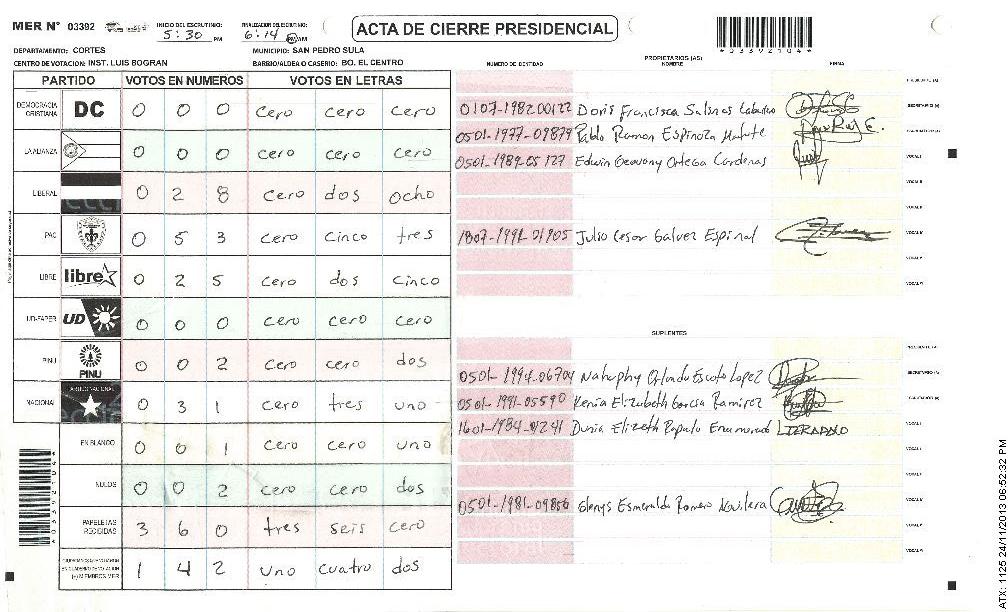 MER Nº 03392 INICIO DEL ESCRUTINIO: 5:30 PM FINALIZACION DEL ESCRUTINIO: 6:14 AM
ACTA DE CIERRE PRESIDENCIAL
*03392104*
DEPARTAMENTO: CORTES MUNICIPIO: SAN PEDRO SULA
CENTRO DE VOTACION: INST. LUIS BOGRAN BARRIO/ALDEA O CASERIO: BO. EL CENTRO
PARTIDO VOTOS EN NUMEROS VOTOS EN LETRAS
DEMOCRACIA CRISTIANA DC 0 0 0 cero cero cero
LA ALIANZA 0 0 0 cero cero cero
LIBERAL 0 2 8 cero dos ocho
PAC 0 5 3 cero cinco tres
LIBRE libre 0 2 5 cero dos cinco
UD-FAPER UD 0 0 0 cero cero cero
PINU PINU 0 0 2 cero cero dos
NACIONAL PARTIDO NACIONAL 0 3 1 cero tres uno
EN BLANCO 0 0 1 cero cero uno
NULOS 0 0 2 cero cero dos
PAPELETAS RECIBIDAS 3 6 0 tres seis cero
(+) MIEMBROS MER 1 4 2 uno cuatro dos
*03392104*
PROPIETARIOS (AS)
NUMERO DE IDENTIDAD NOMBRE FIRMA
0107-1982 00122 Doris Francisca Salinas
SECRETARIO (A)
0501-1977-09879 Pablo Ramon Espinoza
0501-1989-05127 Edwin Geovany Ortega Cardenas
VOCAL I
VOCAL II
1807-1991-01905 Julio Cesar Galvez Espinal
SUPLENTES
0501-1994-06704 Orlando Escoto Lopez
SECRETARIO (A)
0501-1991-05590 Kenia Elizabeth Garcia Ramirez
1601-1984-01241 Dunia Elizeth Rapalo Enamorado
VOCAL I
0501-1981-09856 Glenys Esmeralda Romero Aguilera
ATX: 1125 24/11/2013 06:52:32 PM